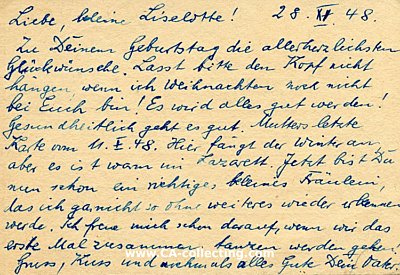 Liebe, kleine Liselotte! 28. XI. 48.
Zu Deinem Geburtstag die allerherzlichsten
Glückwünsche. Lasst bitte den Kopf nicht
hängen, wenn ich Weihnachten noch nicht
bei Euch bin! Es wird alles gut werden!
Gesundheitlich geht es gut. Mutters letzte
Karte vom 11. X. 48. Hier fängt der Winter an,
aber es ist warm im Lazarett. Jetzt bist Du
nun schon ein richtiges kleines Fräulein,
das ich garnicht so ohne weiteres wieder erkennen
werde. Ich freue mich schon darauf, wenn wir das
erste Mal zusammen tanzen werden gehen!
www.CA-collecting.com
Gruss, Kuss und nochmals alles Gute Dein Vater